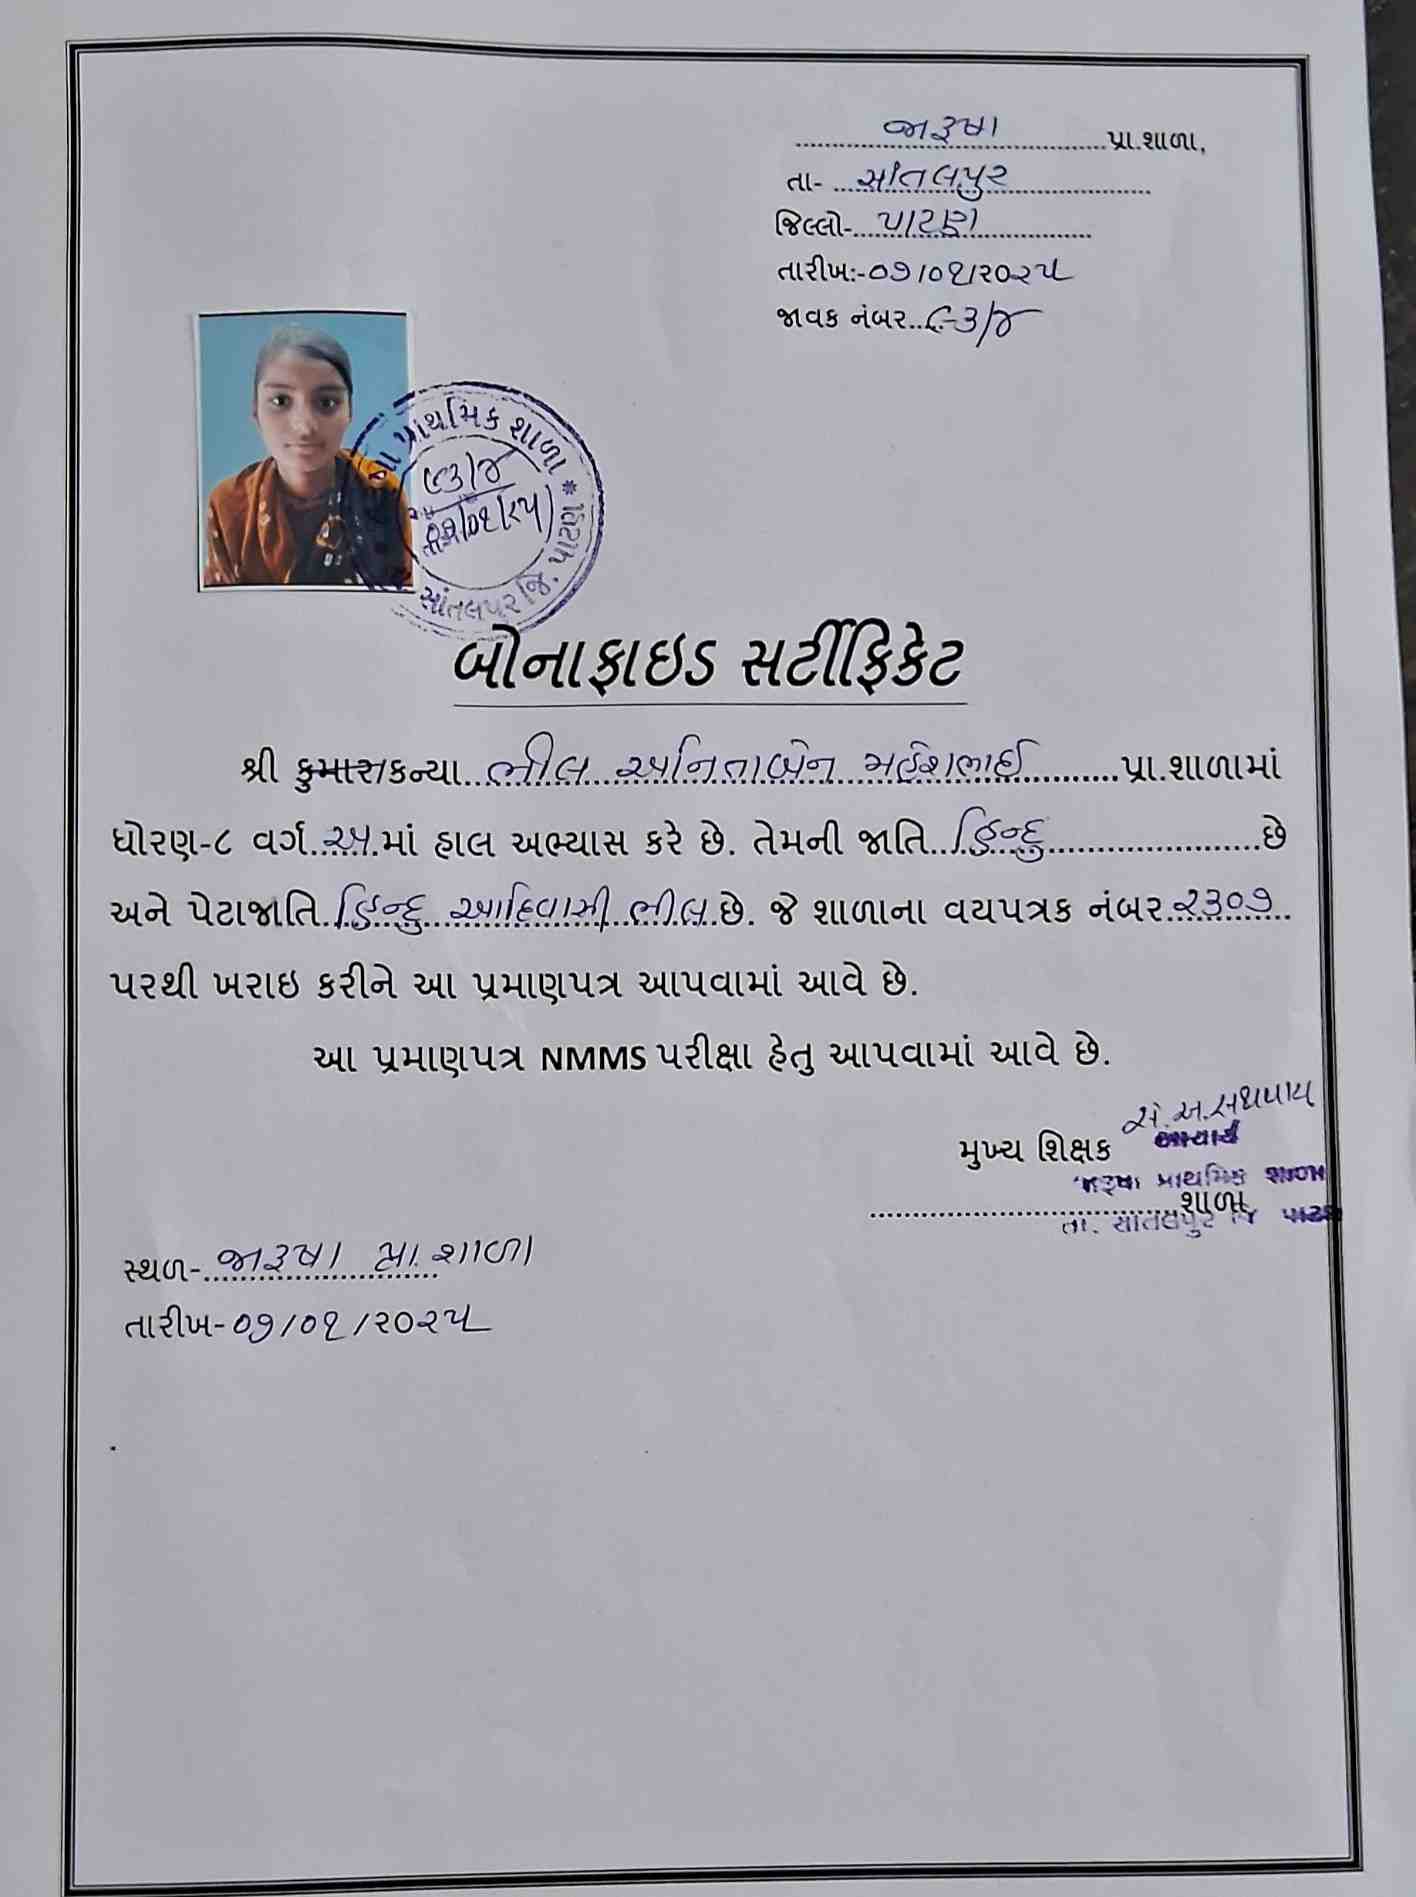 જારૂષા પ્રા.શાળા,
તા- સાંતલપુર
જિલ્લો- પાટણ
તારીખઃ-૦૭/૦૧/૨૦૨૫
જાવક નંબર.. ૯૩/૪
પ્રાથમિક શાળા * જિ. પાટણ
૯૩/૪
તા.૦૭/૦૧/૨૫
સાંતલપુર
બોનાફાઇડ સર્ટીફિકેટ
શ્રી કુમાર/કન્યા ભીલ અનિતાબેન મહેશભાઈ પ્રા.શાળામાં
ધોરણ-૮ વર્ગ અ માં હાલ અભ્યાસ કરે છે. તેમની જાતિ હિન્દુ છે
અને પેટાજાતિ હિન્દુ આદિવાસી ભીલ છે. જે શાળાના વયપત્રક નંબર ૨૩૦૭
પરથી ખરાઇ કરીને આ પ્રમાણપત્ર આપવામાં આવે છે.
આ પ્રમાણપત્ર NMMS પરીક્ષા હેતુ આપવામાં આવે છે.
મુખ્ય શિક્ષક
આચાર્ય
જારૂષા પ્રાથમિક શાળા
શાળા
તા. સાંતલપુર જિ પાટણ
સ્થળ- જારૂષા પ્રા.શાળા
તારીખ-૦૭/૦૧/૨૦૨૫